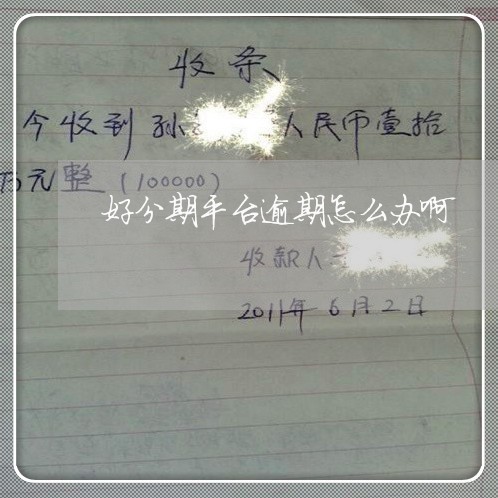 收条
今收到孙 人民币壹拾
万元整（100000）
好分期平台逾期怎么办啊
收款人
2011年6月2日